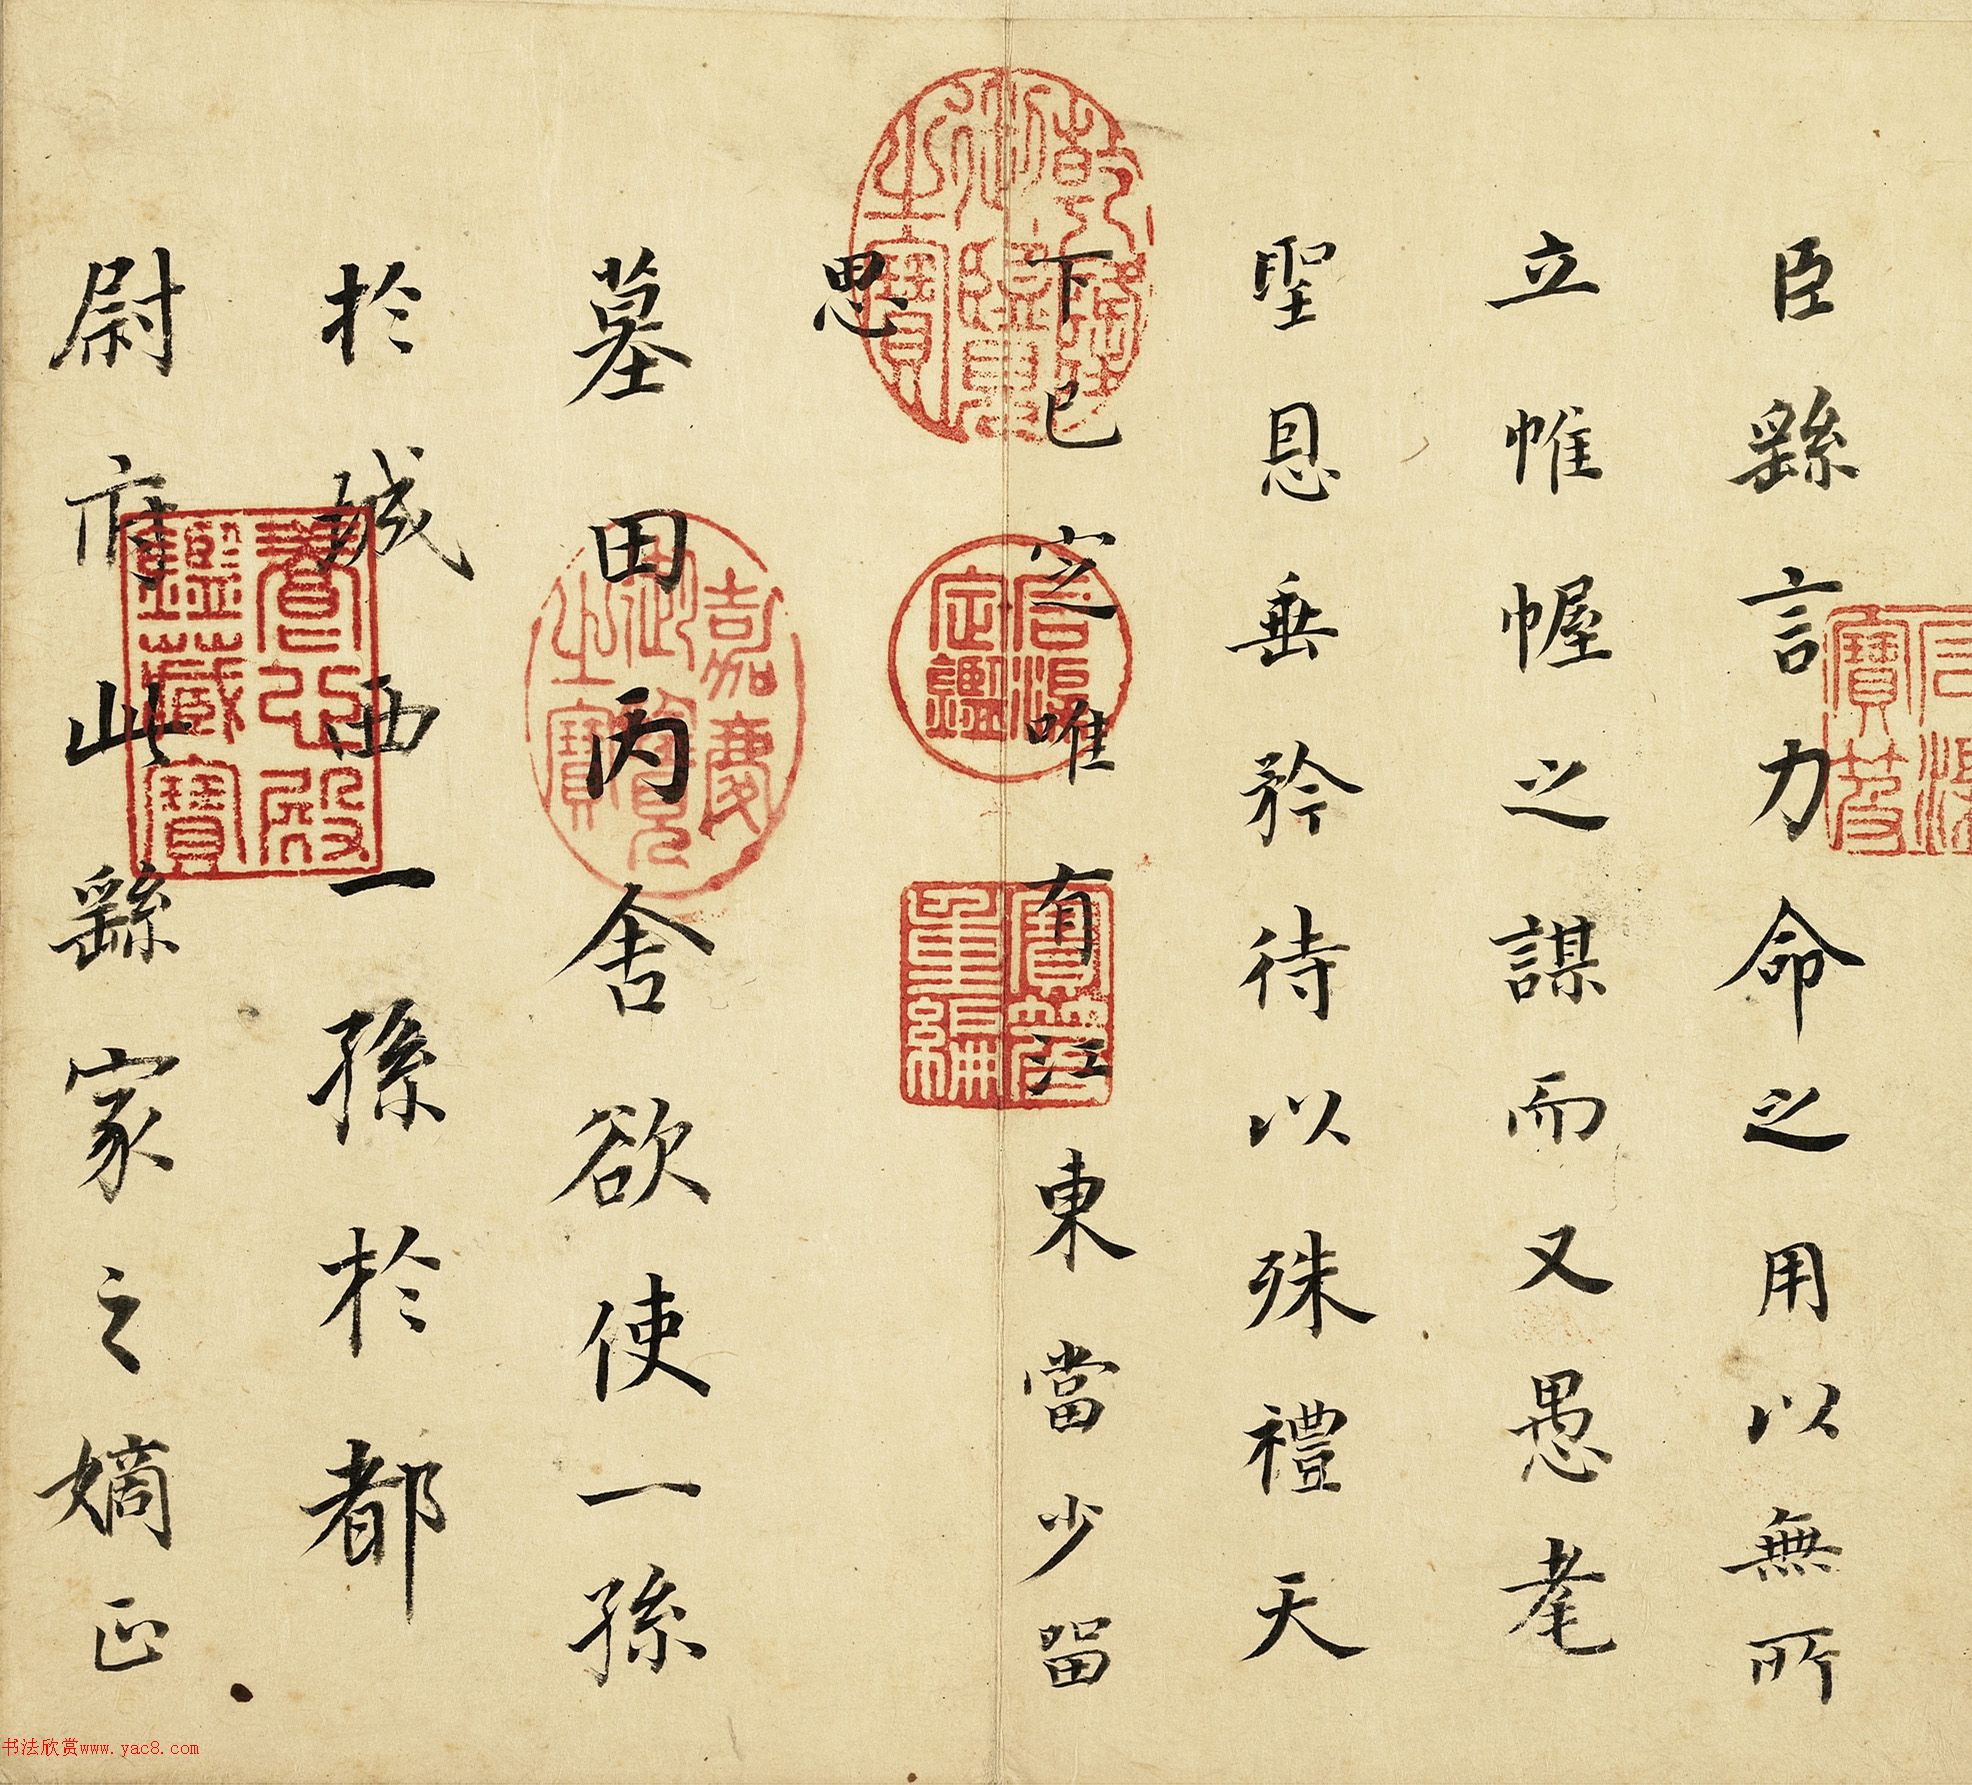 臣繇言力命之用以無所
立帷幄之謀而又愚耄
聖恩垂矜待以殊禮天
下已定唯有江東當少留
思
墓田丙舍欲使一孫
於城西一孫於都
尉府此繇家之嫡正
乾隆御覽之寶
嘉慶御覽之寶
石渠定鑑
寶笈重編
石渠寶笈
養心殿鑑藏寶
书法欣赏www.yac8.com